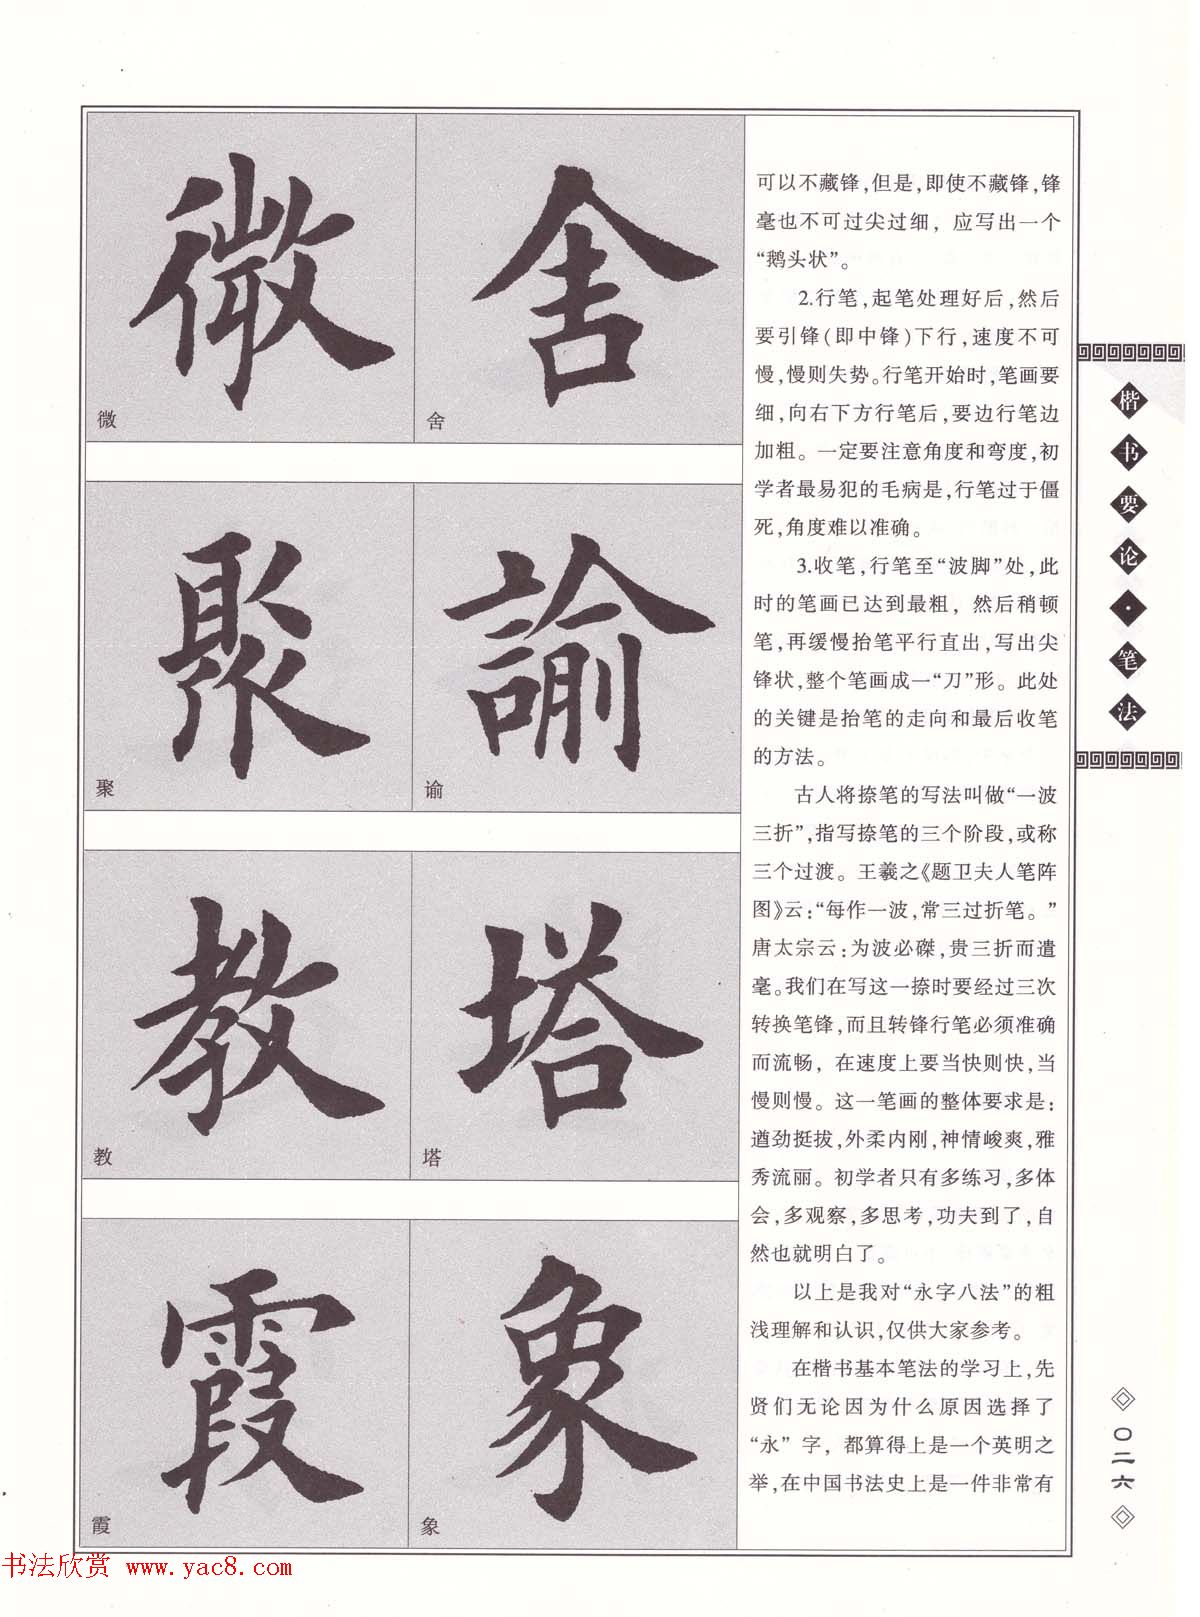 微
舍
微
舍
聚
諭
聚
谕
教
塔
教
塔
霞
象
霞
象
可以不藏锋,但是,即使不藏锋,锋
毫也不可过尖过细，应写出一个
“鹅头状”。
2.行笔,起笔处理好后,然后
要引锋(即中锋)下行,速度不可
慢,慢则失势。行笔开始时,笔画要
细,向右下方行笔后,要边行笔边
加粗。一定要注意角度和弯度,初
学者最易犯的毛病是,行笔过于僵
死,角度难以准确。
3.收笔,行笔至“波脚”处,此
时的笔画已达到最粗，然后稍顿
笔,再缓慢抬笔平行直出,写出尖
锋状,整个笔画成一“刀”形。此处
的关键是抬笔的走向和最后收笔
的方法。
古人将捺笔的写法叫做“一波
三折”,指写捺笔的三个阶段,或称
三个过渡。王羲之《题卫夫人笔阵
图》云:“每作一波,常三过折笔。”
唐太宗云:为波必磔,贵三折而遣
毫。我们在写这一捺时要经过三次
转换笔锋,而且转锋行笔必须准确
而流畅，在速度上要当快则快,当
慢则慢。这一笔画的整体要求是:
遒劲挺拔,外柔内刚,神情峻爽,雅
秀流丽。初学者只有多练习,多体
会,多观察,多思考,功夫到了,自
然也就明白了。
以上是我对“永字八法”的粗
浅理解和认识,仅供大家参考。
在楷书基本笔法的学习上,先
贤们无论因为什么原因选择了
“永”字，都算得上是一个英明之
举,在中国书法史上是一件非常有
楷书要论·笔法
〇二六
书法欣赏 www.yac8.com